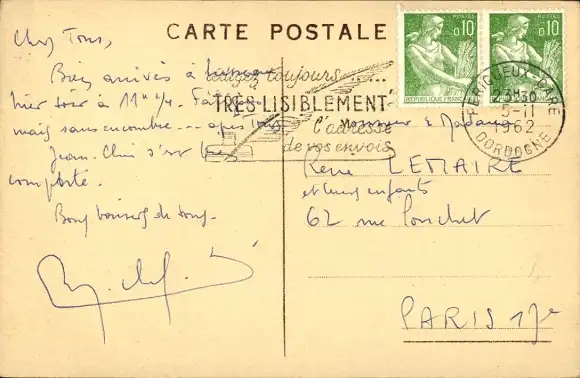 CARTE POSTALE
Chers Tous,
Bien arrivés à
hier soir à 11h 1/4.
mais sans encombre... après
Jean. s'est
comporté.
Bons baisers de tous.
rédigez toujours .....
TRÈS LISIBLEMENT
l'adresse
de vos envois
POSTES 0,10
REPUBLIQUE FRANÇAISE
POSTES 0,10
PERIGUEUX-GARE
23H30
5-11
1962
DORDOGNE
Monsieur & Madame
René LEMAIRE
et leurs enfants
62 rue Pouchet
PARIS 17e